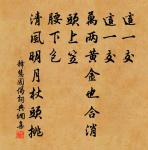 這一交
這一交
萬兩黃金也合消
頭上笠
腰下包
清風明月杖頭挑
釋慧圓偈詞典網集